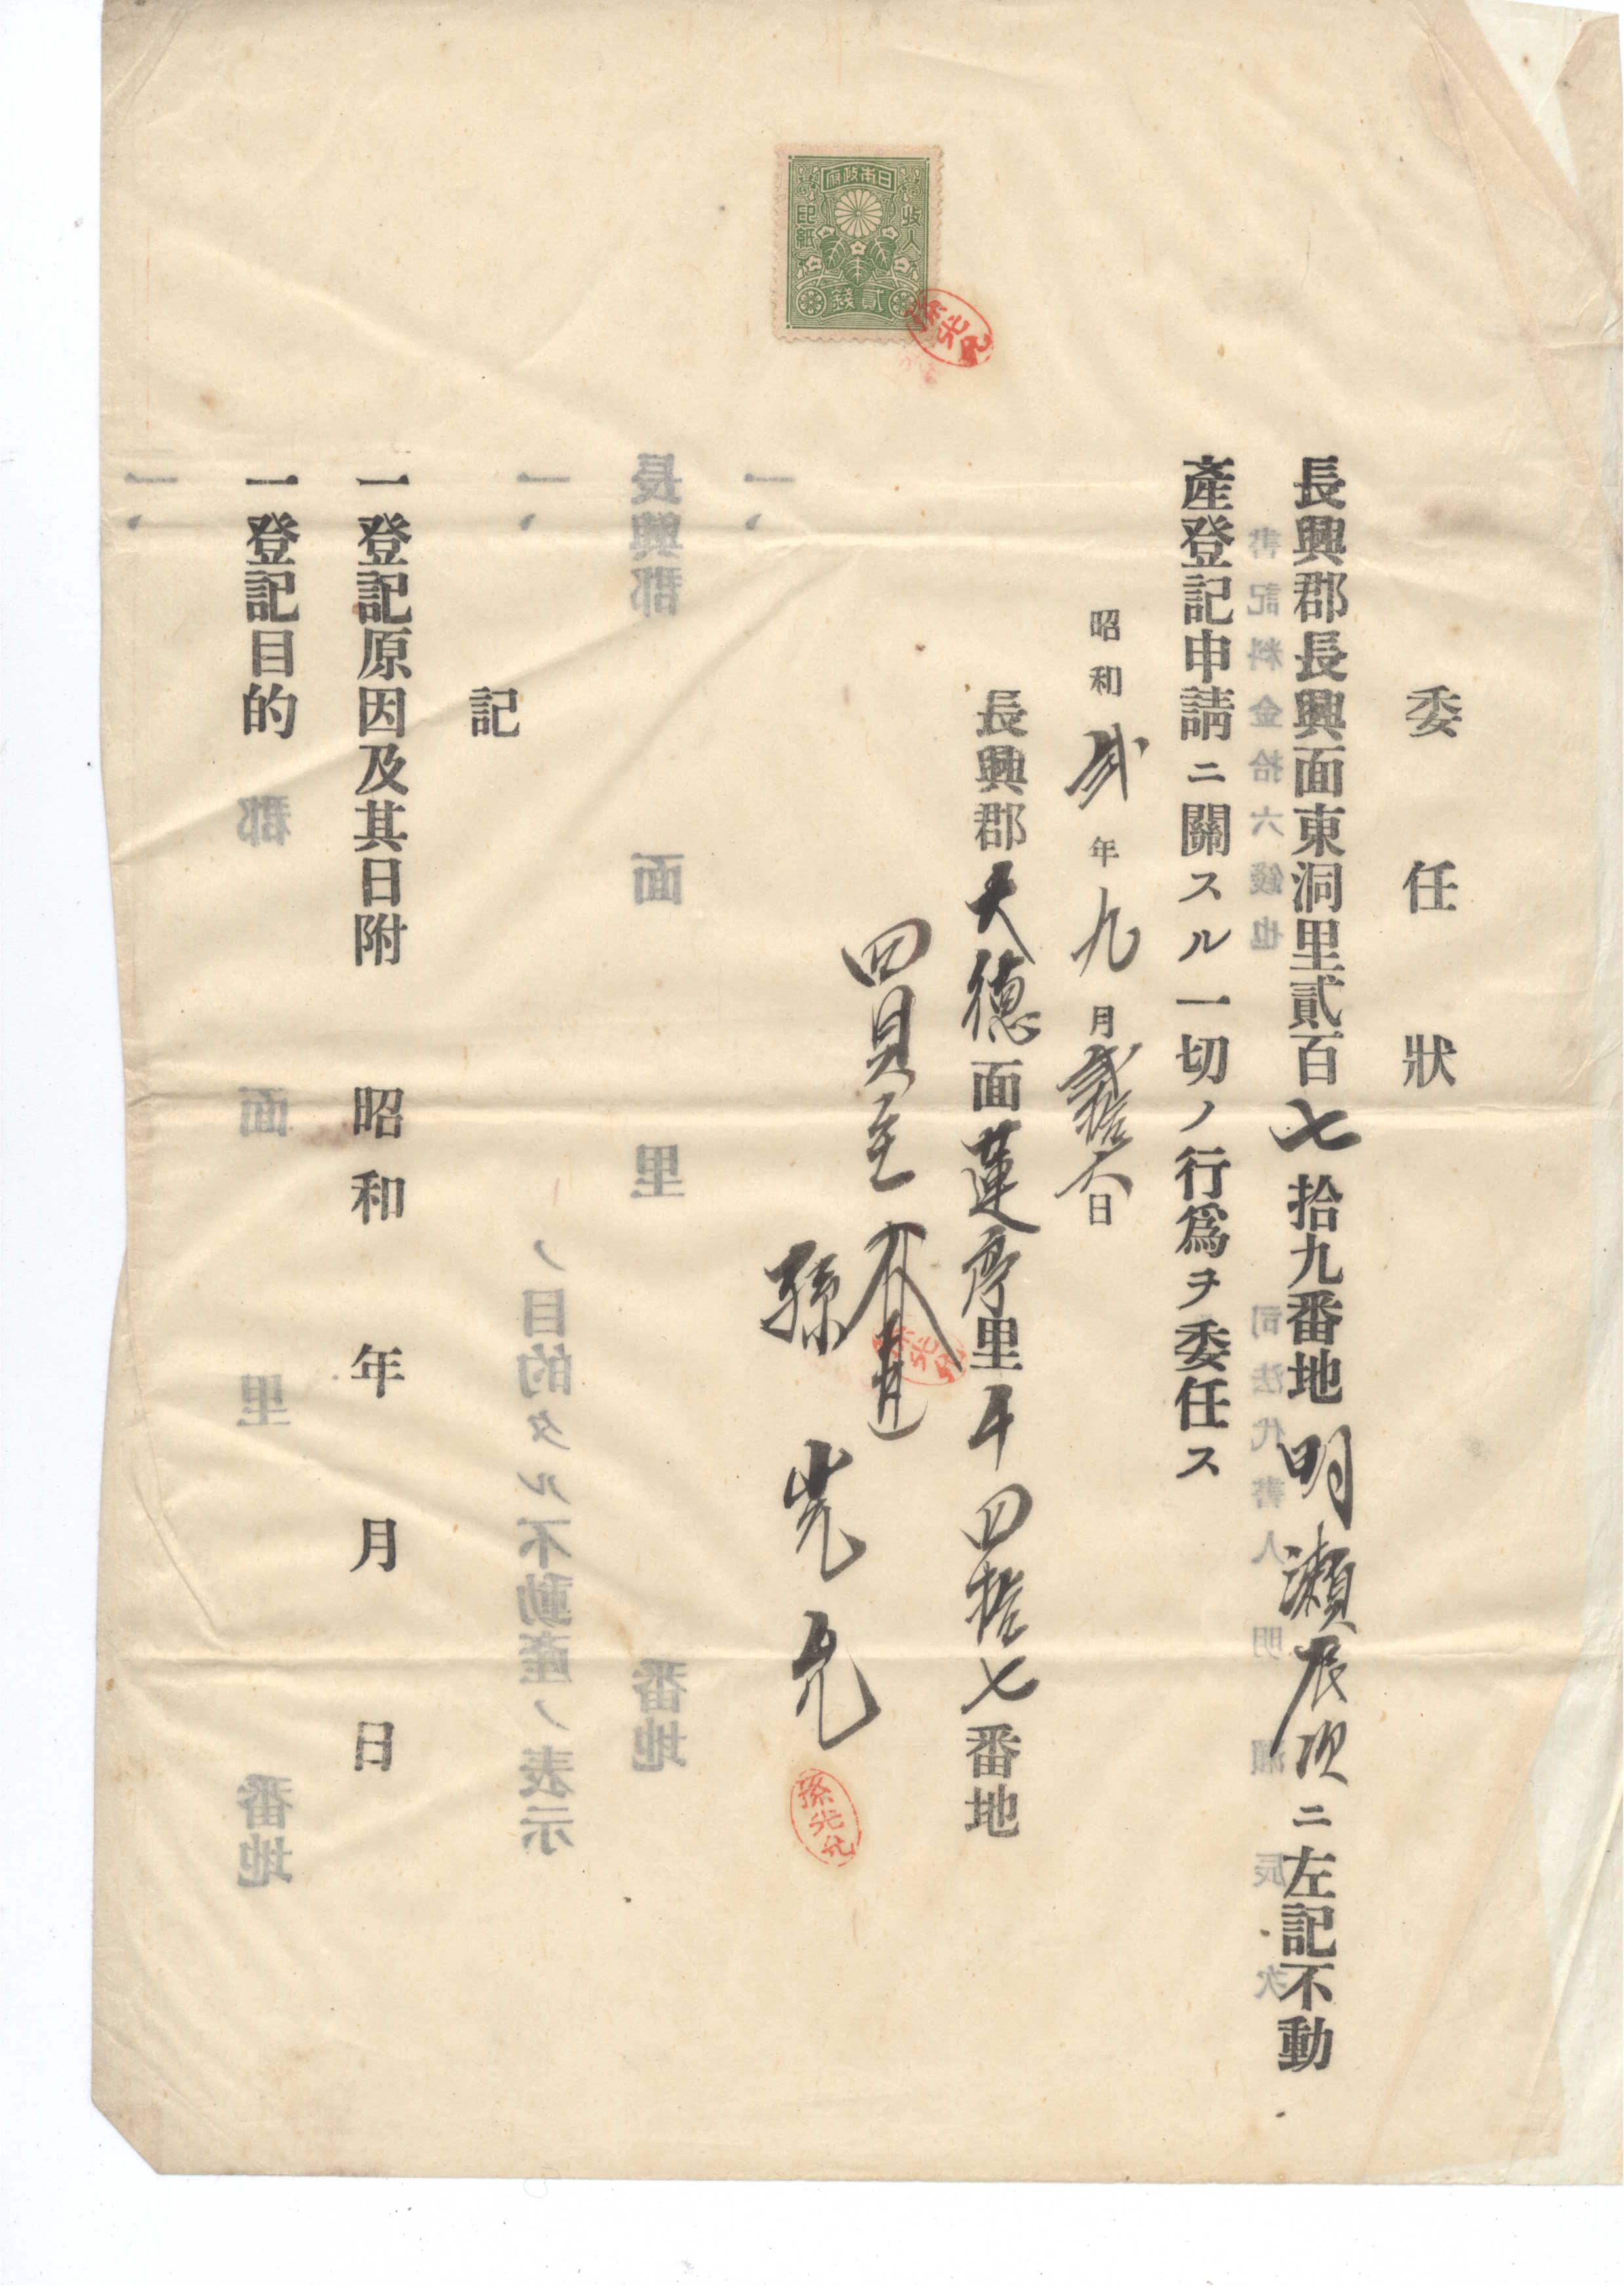 日本政府
收入
印紙
貳錢
孫光允
委任狀
長興郡長興面東洞里貳百七拾九番地明瀨辰次ニ左記不動
產登記申請ニ關スル一切ノ行爲ヲ委任ス
昭和貳年九月貳拾六日
長興郡大德面蓮亭里千四拾七番地
孫光允
孫光允
孫光允
記
一登記原因及其日附 昭和 年 月 日
一登記目的
書記料金拾六錢也 司法代書人 明瀨辰次
一、
長興郡 面 里 番地
一、 ノ目的タル不動產ノ表示
郡 面 里 番地
一、